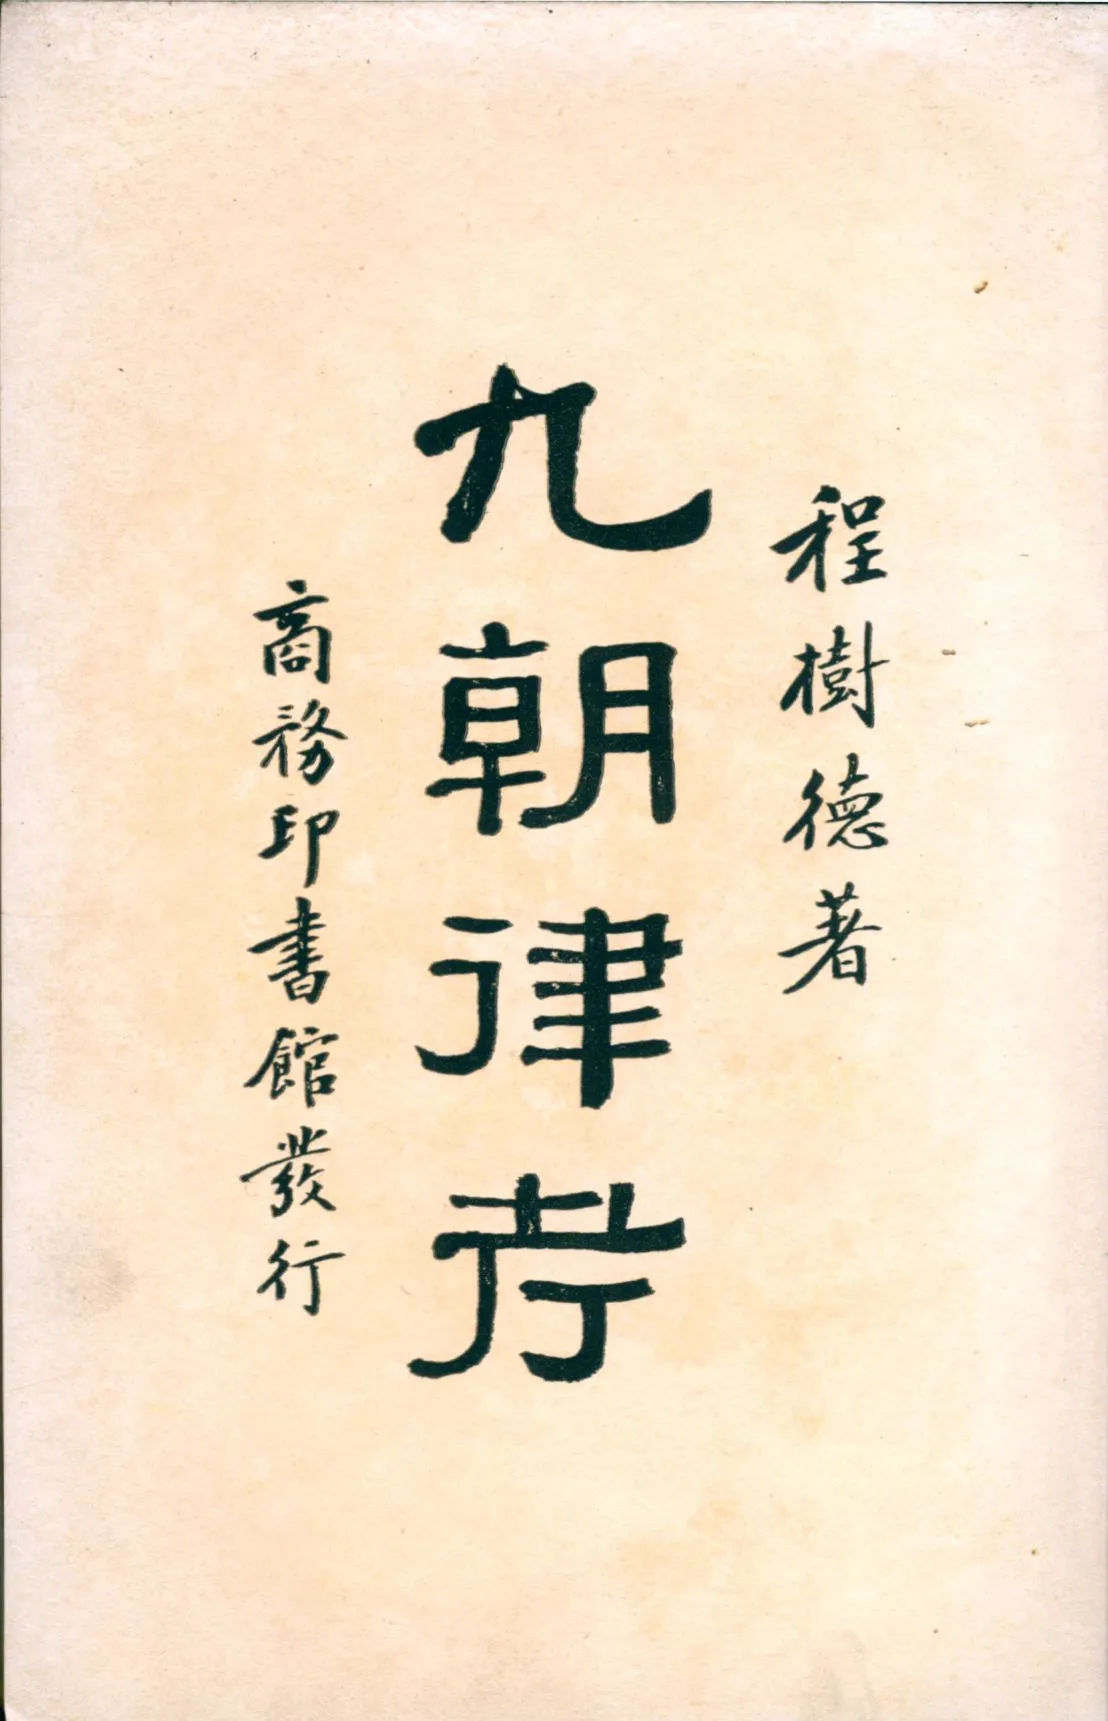 程樹德著
九朝律考
商務印書館發行